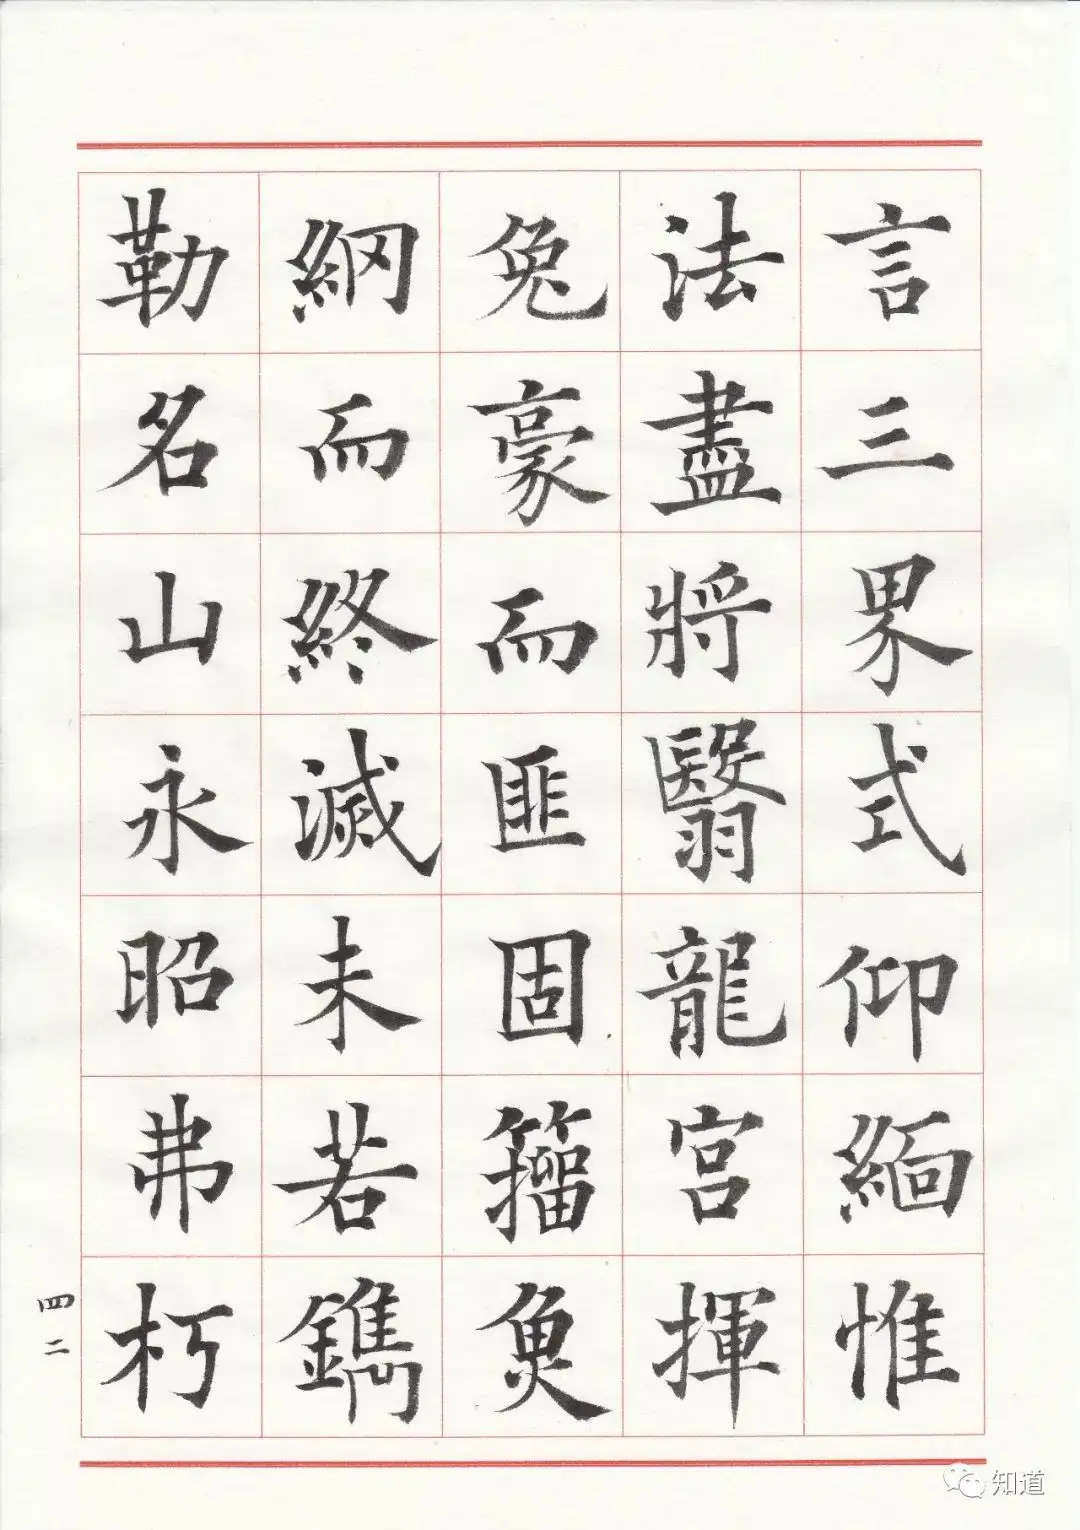 言三界式仰緬惟
法盡將翳龍宮揮
兔豪而匪固籀魚
網而終滅未若鐫
勒名山永昭弗朽
四二
知道